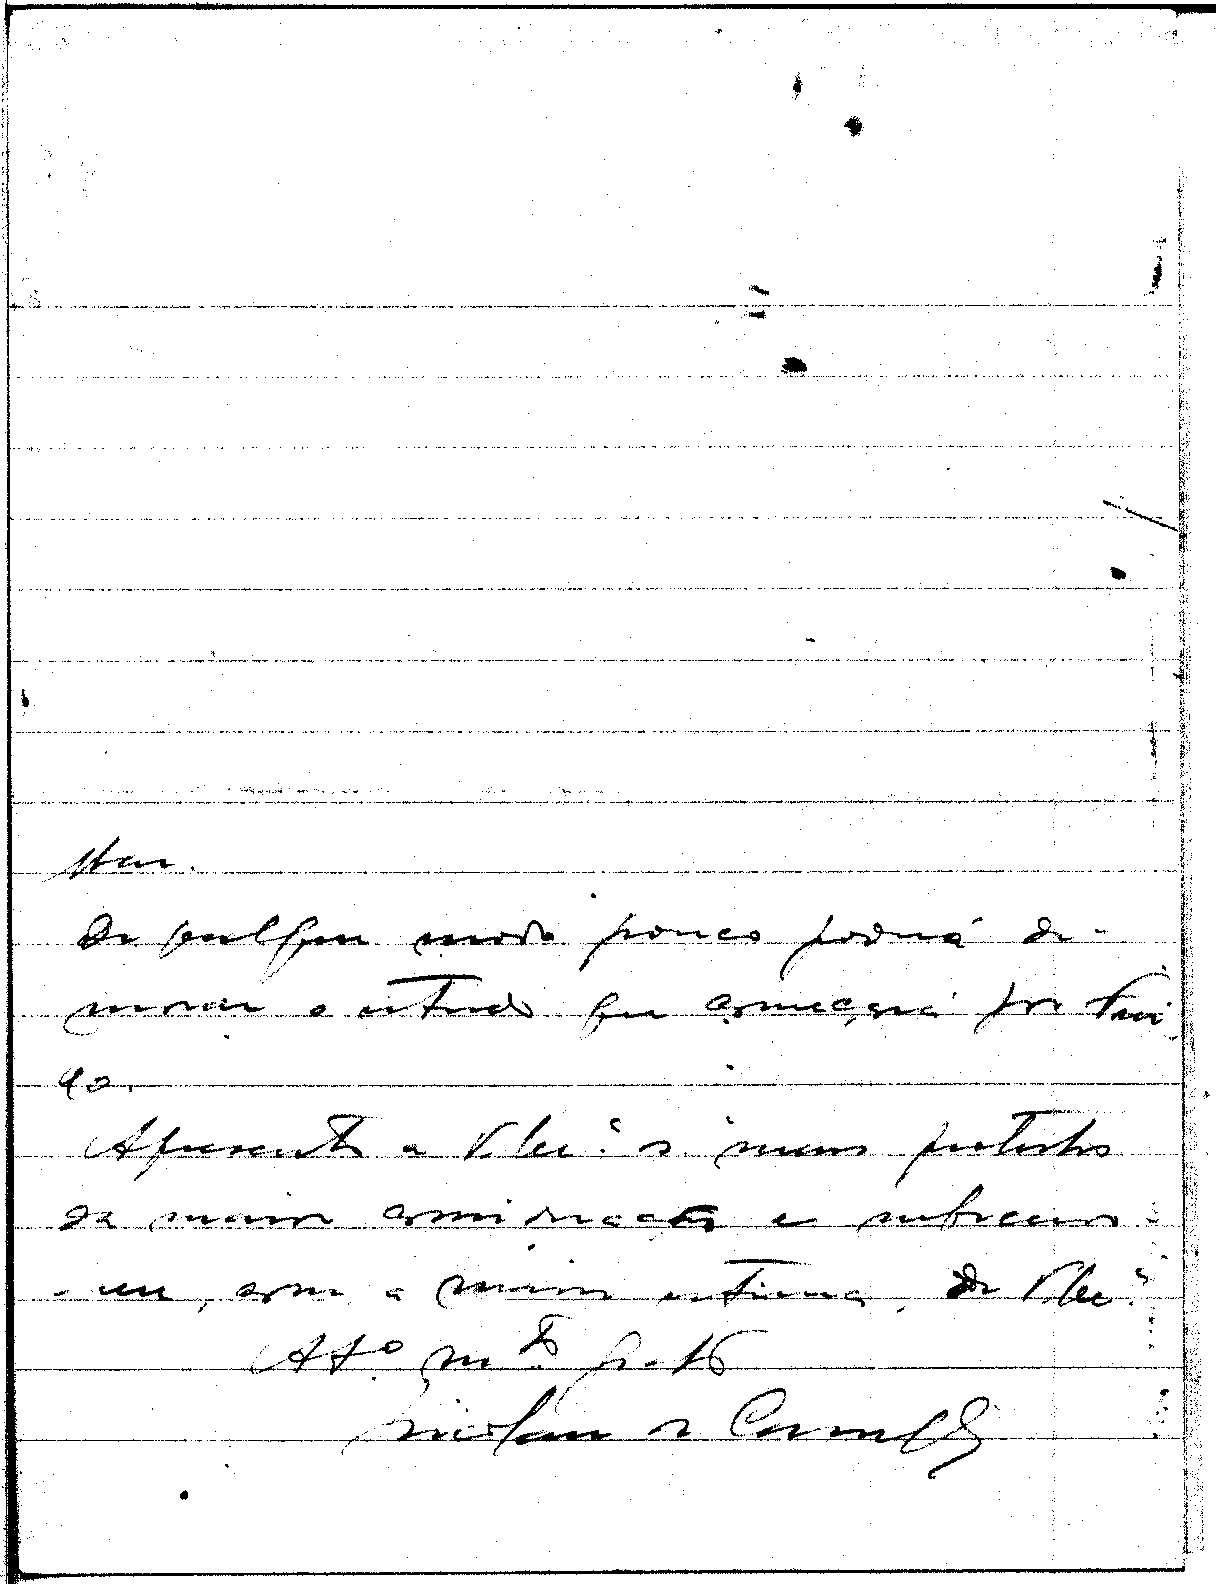 De qualquer modo pouco poderá de-
morar o estudo que começará por Tui
ço.
Apresento a V. Exc.ª os meus protestos
da maior consideração e subscrevo-
-me, com a maior estima, de V. Exc.ª
Att.º m.to grato
Nicolau